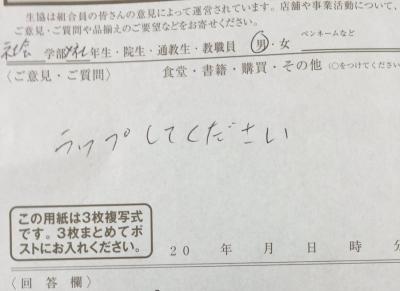 生協は組合員の皆さんの意見によって運営されています。店舗や事業活動について、
ご意見・ご質問や品揃えのご要望などをお寄せください。
社会 学部 年生・院生・通教生・教職員 男・女 ペンネームなど
〈ご意見・ご質問〉 食堂・書籍・購買・その他 (○をつけてください)
ラップしてください
この用紙は3枚複写式
です。3枚まとめてポ
ストにお入れください。
20 年 月 日 時 分
〈回答欄〉